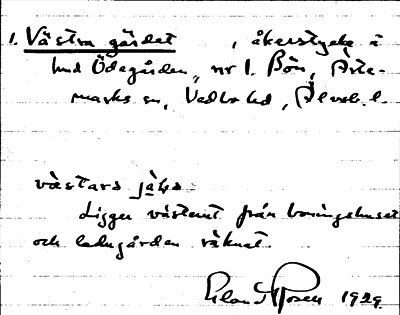 1. Västra gärdet, åkerstycke å
hmd Ödegården, nr 1. Bön, Arte-
marks sn, Vedbo hd, Älvsb. l.
västars jäḷs
Ligger västerut från boningshuset
och ladugården räknat.
1929.